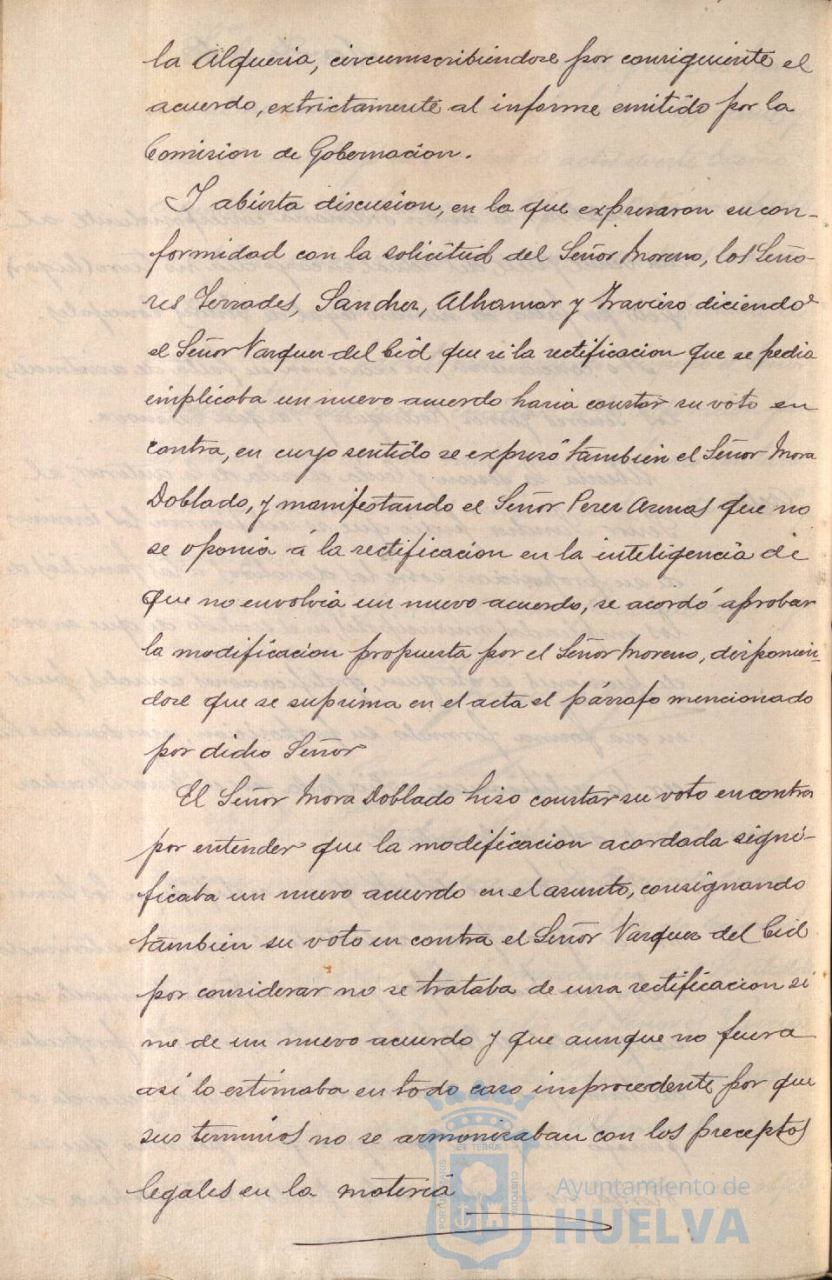 la Alqueria, circumscribiendose por consiguiente el
acuerdo, extrictamente al informe emitido por la
Comision de Gobernacion.
Y abierta discusion, en la que expresaron su con-
formidad con la solicitud del Señor Moreno, los Seño-
res Terrades, Sanchez, Alhamar y Travieso diciendo
el Señor Vazquez del Cid que si la rectificacion que se pedia
implicaba un nuevo acuerdo haria constar su voto en
contra, en cuyo sentido se expresó tambien el Señor Mora
Doblado, y manifestando el Señor Perez Arenas que no
se oponia á la rectificacion en la inteligencia de
que no envolvia un nuevo acuerdo, se acordó aprobar
la modificacion propuesta por el Señor Moreno, disponien-
dose que se suprima en el acta el párrafo mencionado
por dicho Señor
El Señor Mora Doblado hizo constar su voto en contra
por entender que la modificacion acordada signi-
ficaba un nuevo acuerdo en el asunto, consignando
tambien su voto en contra el Señor Vazquez del Cid
por considerar no se trataba de una rectificacion si
no de un nuevo acuerdo y que aunque no fuera
asi lo estimaba en todo caso improcedente por que
sus terminos no se armonizaban con los preceptos
legales en la materia
Ayuntamiento de
HUELVA